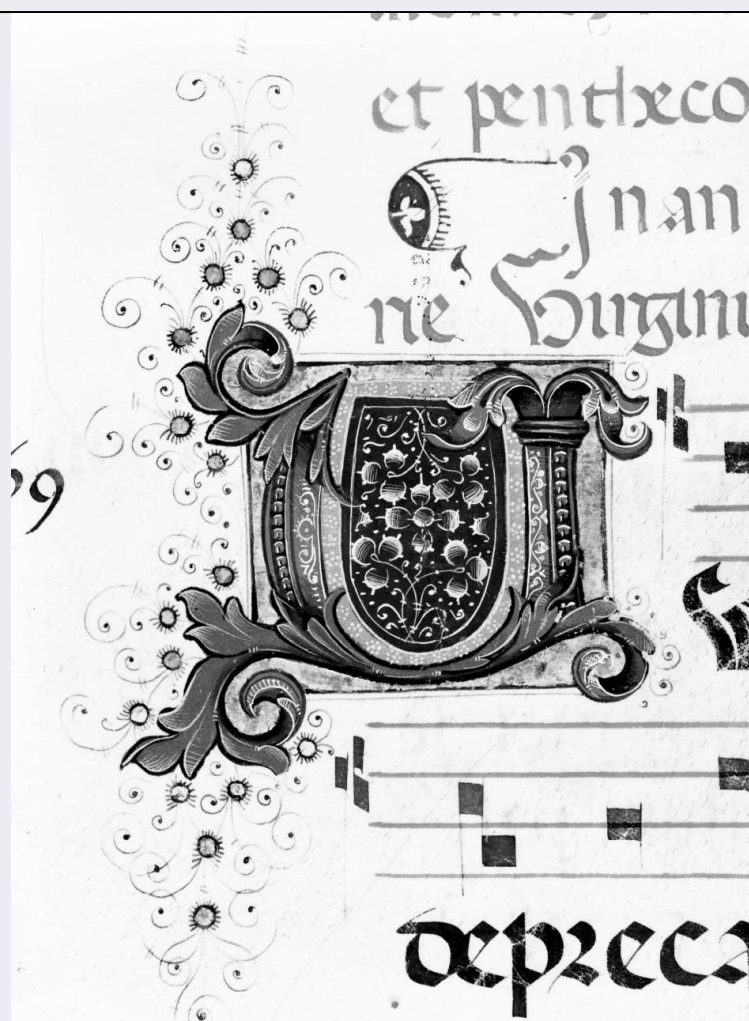 et pentheco
In an
rie Virginu
69
V
depreca